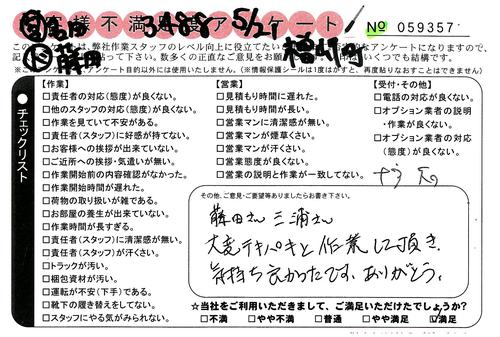 お客様不満足度アンケート
3488 5/27
No 059357
藤田
このアンケートは、弊社作業スタッフのレベル向上に役立てたい
アンケートになりますので、
数多くの正直なご意見をお願い
いつでも結構です。
アンケート目的以外には使用いたしません。(※情報保護シールは1度はがすと、再度貼りなおすことはできません)
チェックリスト
【作業】
□責任者の対応(態度)が良くない。
□他のスタッフの対応(態度)が良くない。
□作業を見ていて不安がある。
□責任者(スタッフ)に好感が持てない。
□お客様への挨拶が出来ていない。
□ご近所への挨拶・気遣いが無い。
□作業開始前の内容確認がなかった。
□作業開始時間が遅れた。
□荷物の取り扱いが雑である。
□お部屋の養生が出来ていない。
□作業時間が長すぎる。
□責任者(スタッフ)に清潔感が無い。
□責任者(スタッフ)が汗くさい。
□トラックが汚い。
□梱包資材が汚い。
□運転が不安(下手)である。
□靴下の履き替えをしてない。
□スタッフにやる気がみられない。
【営業】
□見積もり時間に遅れた。
□見積もり時間が長い。
□営業マンに清潔感が無い。
□営業マンが煙草くさい。
□営業マンが汗くさい。
□営業態度が良くない。
□営業の説明と作業が一致してない。
【受付・その他】
□電話の対応が良くない。
□オプション業者の説明
・作業が良くない。
□オプション業者の対応
(態度)が良くない。
その他、ご意見・ご要望等ありましたらお書き下さい。
藤田さん 三浦さん
大変テキパキと作業して頂き
気持ち良かったです。ありがとう。
☆当社をご利用いただきまして、ご満足いただけたでしょうか?
□不満 □やや不満 □普通 □やや満足 ☑満足